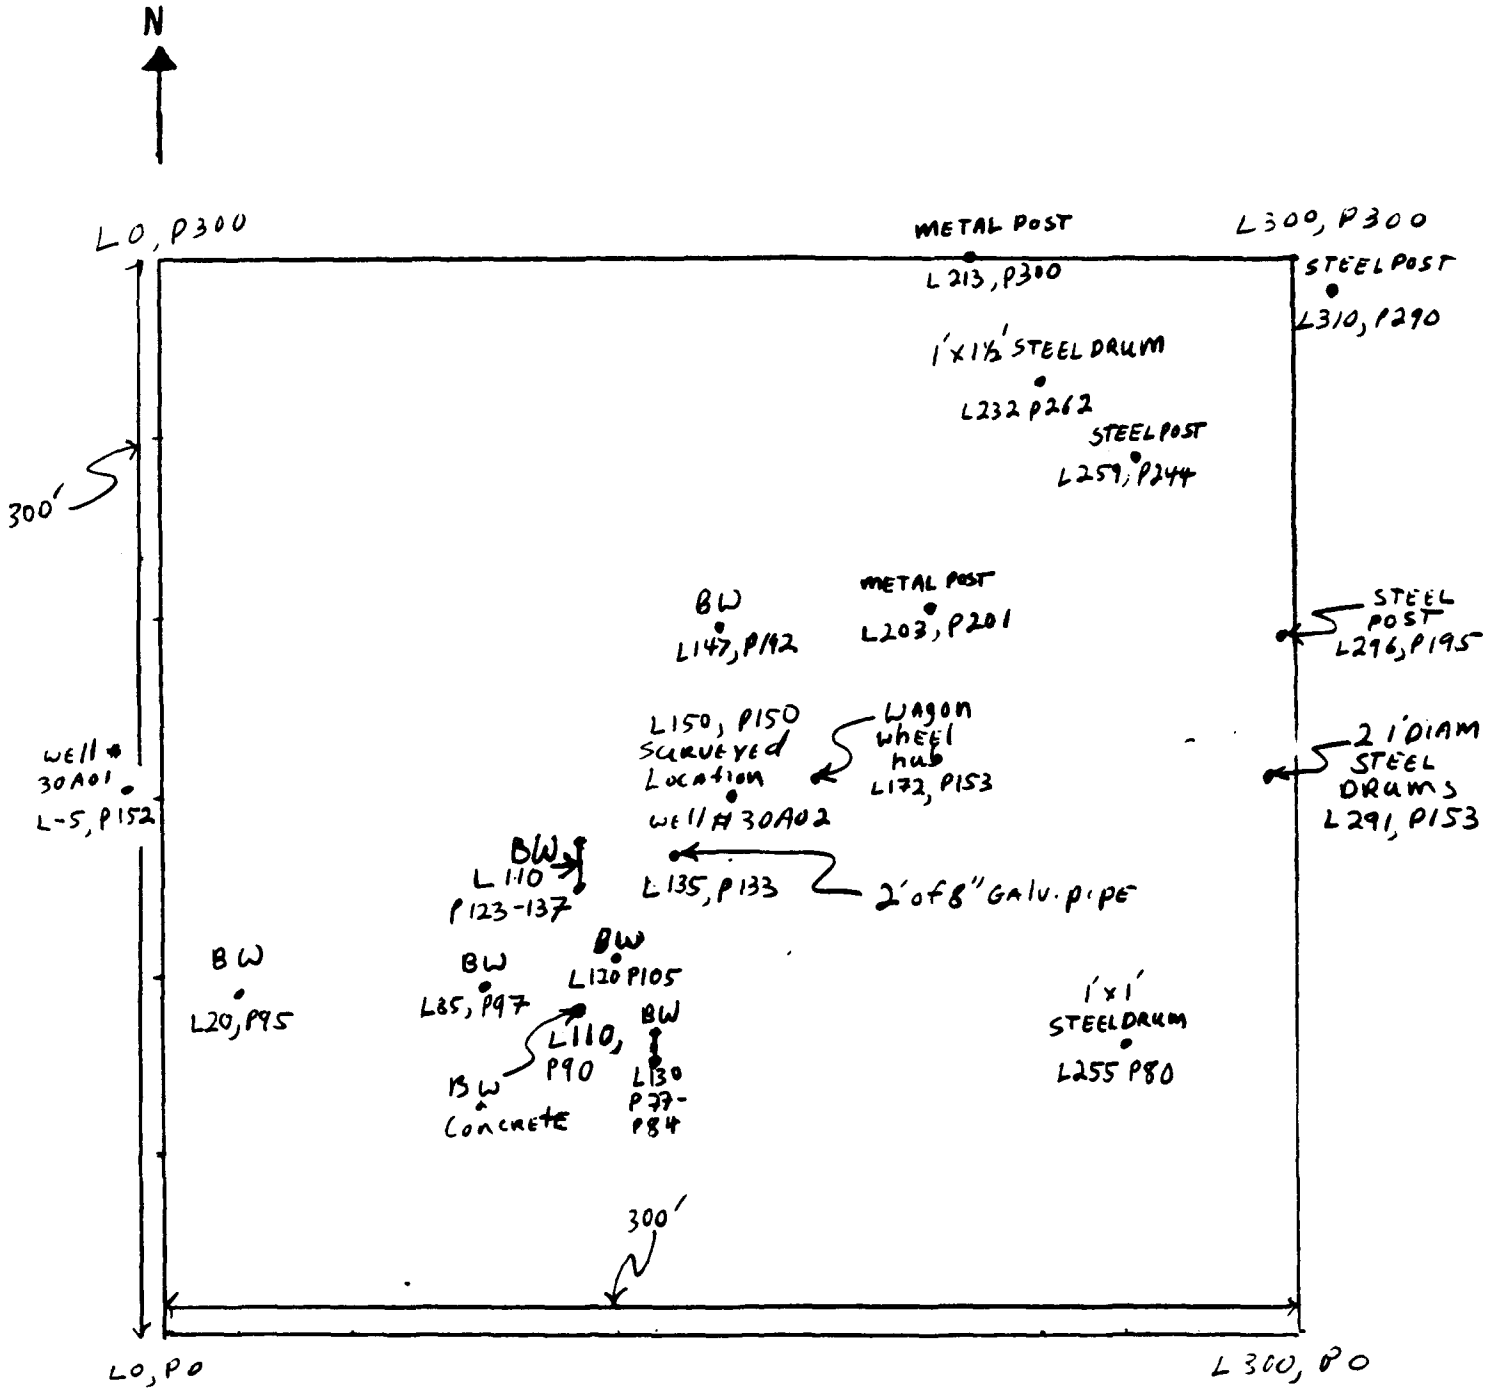 N
L0, P300
METAL POST
L213, P300
L300, P300
STEEL POST
L310, P290
1' x 1½' STEEL DRUM
L232 P262
STEEL POST
L259, P244
300'
BW
L147, P192
METAL POST
L203, P201
STEEL
POST
L296, P195
L150, P150
SURVEYED
LOCATION
WELL # 30A02
WAGON
WHEEL
HUB
L172, P153
2 1' DIAM
STEEL
DRUMS
L291, P153
WELL #
30A01
L-5, P152
BW
L110
P123-137
L135, P133
2' of 8" GALV. PIPE
BW
L20, P95
BW
L85, P97
BW
L120 P105
L110,
P90
BW
CONCRETE
BW
L130
P77-
P84
1' x 1'
STEEL DRUM
L255 P80
300'
L0, P0
L300, P0